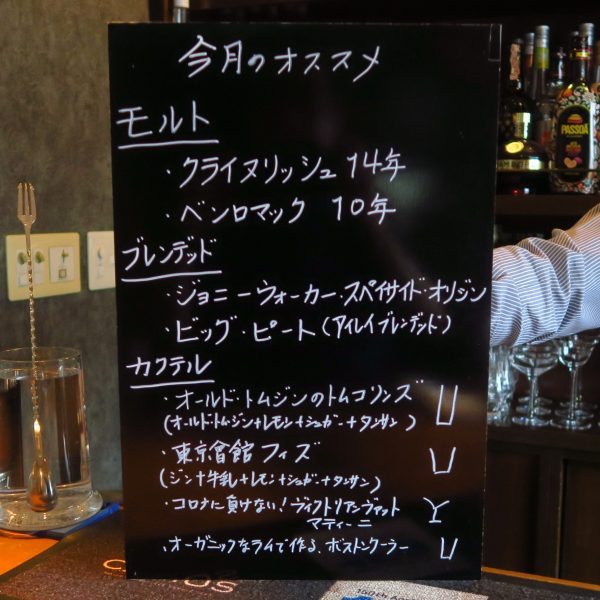 今月のオススメ
モルト
・クライヌリッシュ 14年
・ベンロマック 10年
ブレンデッド
・ジョニーウォーカー・スペイサイド・オリジン
・ビッグ・ピート(アイレイブレンデッド)
カクテル
・オールド・トムジンのトムコリンズ
(オールド・トムジン+レモン+シュガー+タンサン)
・東京會館フィズ
(ジン+牛乳+レモン+シュガー+タンサン)
・コロナに負けない!ヴィクトリアンヴァット
マティーニ
・オーガニックなライムで作る、ボストンクーラー
PASSOÃ